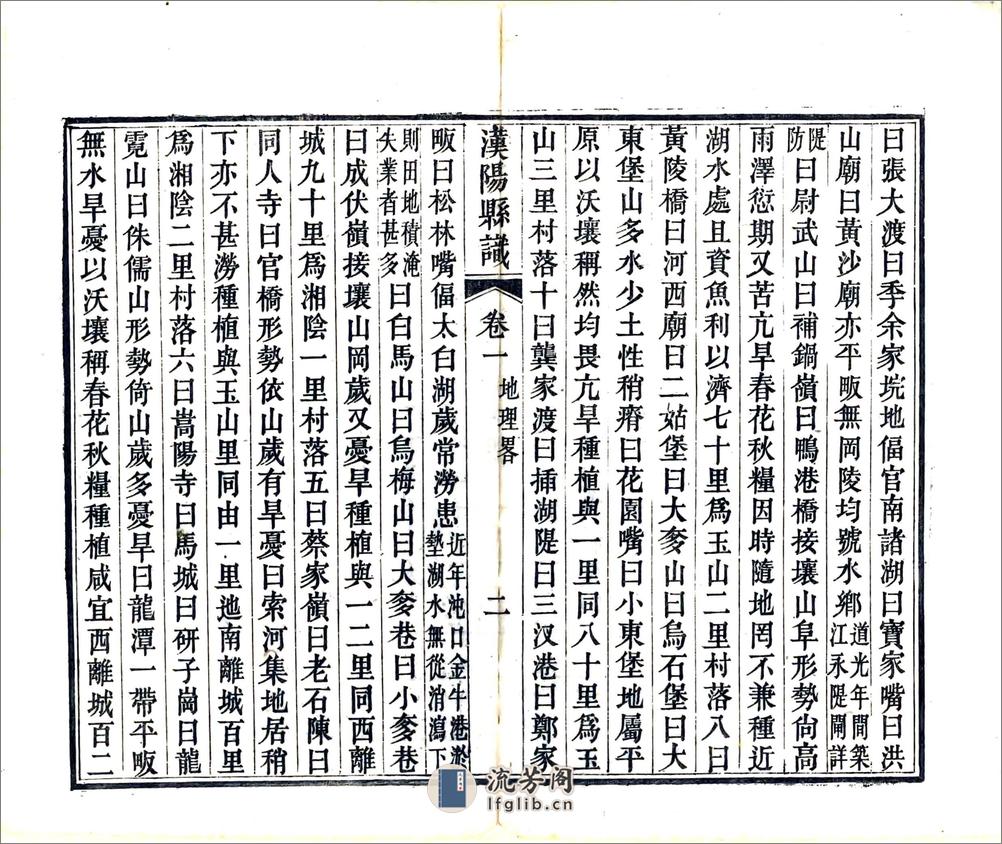 曰張大渡曰季余家垸地偪官南諸湖曰寶家嘴曰洪
山廟曰黃沙廟亦平畈無岡陵均號水鄉道光年間築江永隄閘詳
隄防曰尉武山曰補鍋嶺曰鴨港橋接壤山阜形勢尙高
雨澤愆期又苦亢旱春花秋糧因時隨地罔不兼種近
湖水處且資魚利以濟七十里爲玉山二里村落八曰
黃陵橋曰河西廟曰二姑堡曰大奓山曰烏石堡曰大
東堡山多水少土性稍瘠曰花園嘴曰小東堡地屬平
原以沃壤稱然均畏亢旱種植與一里同八十里爲玉
山三里村落十曰龔家渡曰插湖隄曰三汊港曰鄭家
漢陽縣識
卷一
地理畧
二
畈曰松林嘴偪太白湖歲常澇患近年沌口金牛港淤墊湖水無從消瀉下
則田地積淹失業者甚多曰白馬山曰烏梅山曰大奓巷曰小奓巷
曰成伏嶺接壤山岡歲又憂旱種植與一二里同西離
城九十里爲湘陰一里村落五曰蔡家嶺曰老石陳曰
同人寺曰官橋形勢依山歲有旱憂曰索河集地居稍
下亦不甚澇種植與玉山里同由一里迆南離城百里
爲湘陰二里村落六曰嵩陽寺曰馬城曰硏子崗曰龍
霓山曰侏儒山形勢倚山歲多憂旱曰龍潭一帶平畈
無水旱憂以沃壤稱春花秋糧種植咸宜西離城百二
流芳阁
lfglib.cn